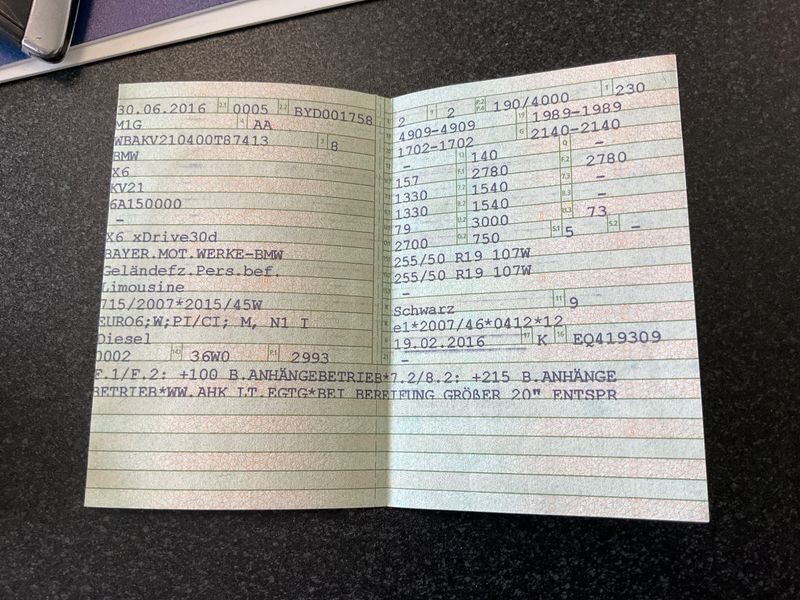 30.06.2016 2.1 0005 2.2 BYD001758
M1G 4 AA
WBAKV210400T87413 3 8
BMW
X6
KV21
6A150000
–
X6 xDrive30d
BAYER.MOT.WERKE-BMW
Geländefz.Pers.bef.
Limousine
715/2007*2015/45W
EURO6;W;PI/CI; M, N1 I
Diesel
0002 14.1 36W0 P.1 2993
2 9 2 P.2 P.4 190/4000 T 230
4909-4909 19 1989-1989
1702-1702 G 2140-2140
– 13 140 Q –
157 F.1 2780 F.2 2780
1330 7.2 1540 7.3 –
1330 8.2 1540 8.3 –
79 U.2 3000 U.3 73
2700 O.2 750 S.1 5 S.2 –
255/50 R19 107W
255/50 R19 107W
–
Schwarz 11 9
e1*2007/46*0412*12
19.02.2016 17 K 16 EQ419309
21 –
F.1/F.2: +100 B.ANHÄNGEBETRIEB*7.2/8.2: +215 B.ANHÄNGE
BETRIEB*WW.AHK LT.EGTG*BEI BEREIFUNG GRÖßER 20" ENTSPR